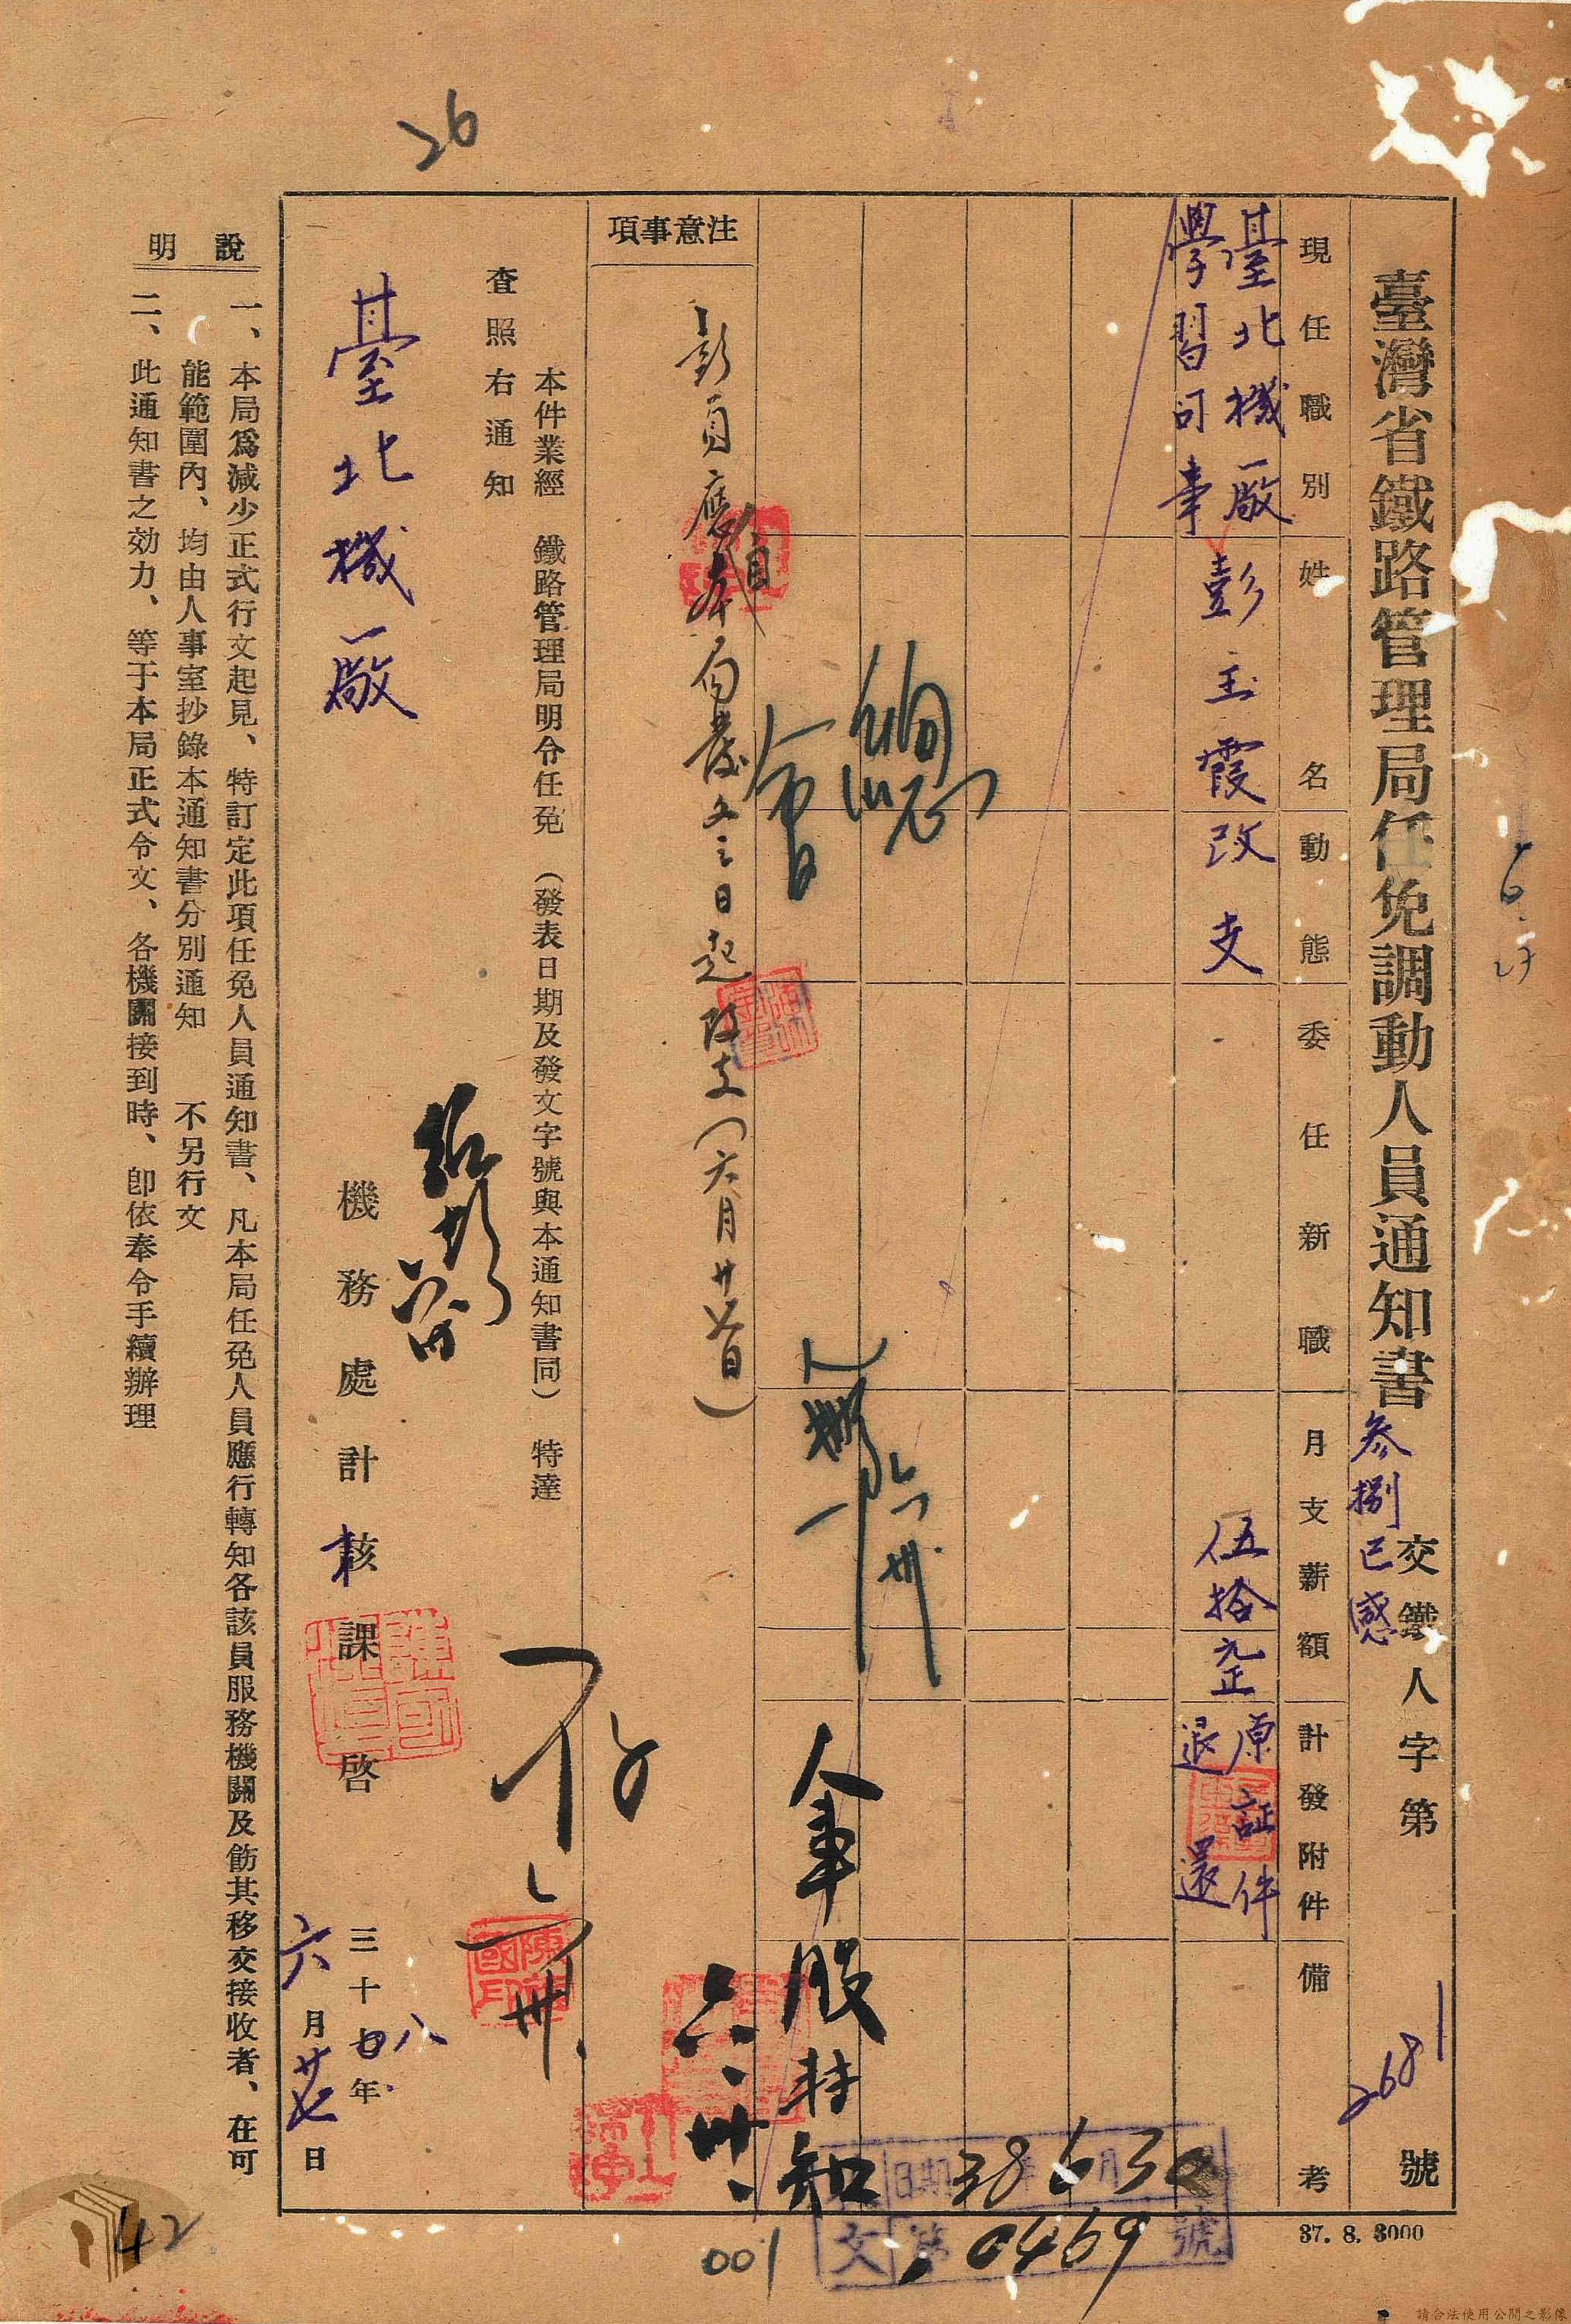 臺灣省鐵路管理局任免調動人員通知書
參捌已感
交鐵人字第2681號
現任職別
姓名
動態
委任新職
月支薪額
計發附件
備考
臺北機廠
學習司事
彭玉霞
改支
伍拾元正
原証件
退還
總
人事股
知
注意事項
彭員應自本局發文之日起改支(六月廿七日)
本件業經 鐵路管理局明令任免(發表日期及發文字號與本通知書同) 特達
查照右通知
臺北機廠
機務處計核課啓
三十八年
六月廿七日
說明
一、本局爲減少正式行文起見、特訂定此項任免人員通知書、凡本局任免人員應行轉知各該員服務機關及飭其移交接收者、在可
能範圍內、均由人事室抄錄本通知書分別通知 不另行文
二、此通知書之効力、等于本局正式令文、各機關接到時、卽依奉令手續辦理
26
日期 38年6月30
文 第0469號
001
42
37. 8. 3000
6.27
請合法使用公開之影像